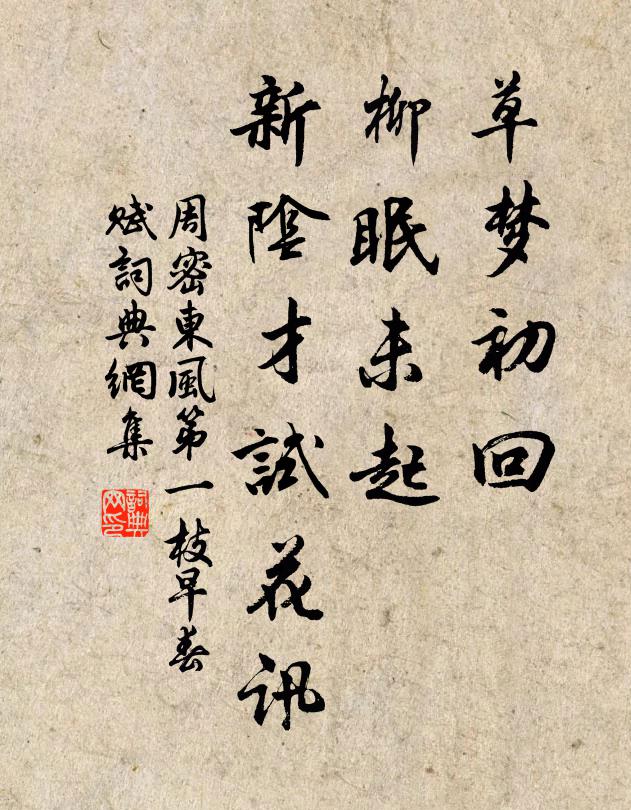 草梦初回
柳眠未起
新陰才試花讯
周密東風第一枝早春
赋詞典網集
詞典网印